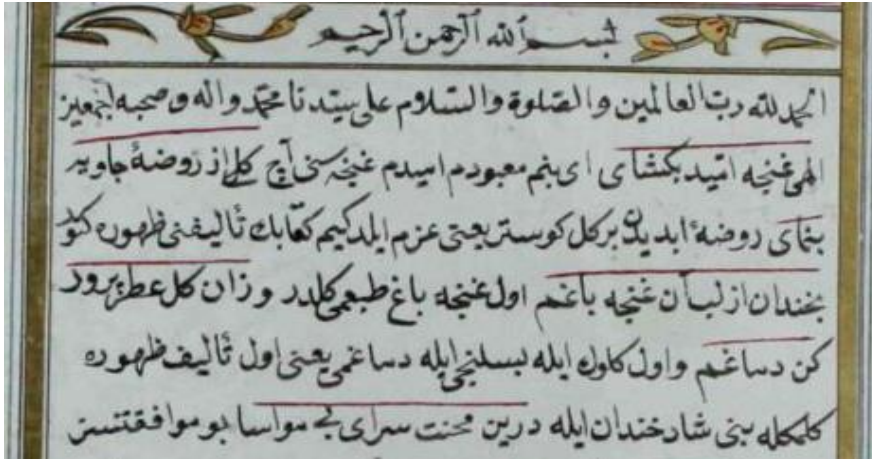 بسم الله الرحمن الرحيم
الحمد لله رب العالمين والصلوة والسلام على سيدنا محمد واله وصحبه اجمعين
الهی غنچه امید بکشای ای بنم معبودم امیدم غنچه سنی آچ کلی از روضۀ جاوید
بنمای روضۀ ابدیدن بر کل کوستر یعنی عزم ایلدکیم کتابك تألیفنی ظهوره کتور
بخندان از لب آن غنچه باغم اول غنچه باغ طبعمی کلدر وزان کل عطرپرور
کن دماغم واول کلوك ایله بسلنجی ایله دماغمی یعنی اول تألیف ظهوره
کلمکله بنی شاد خندان ایله درین محنت سرای بی مواسا بو موافقتسز